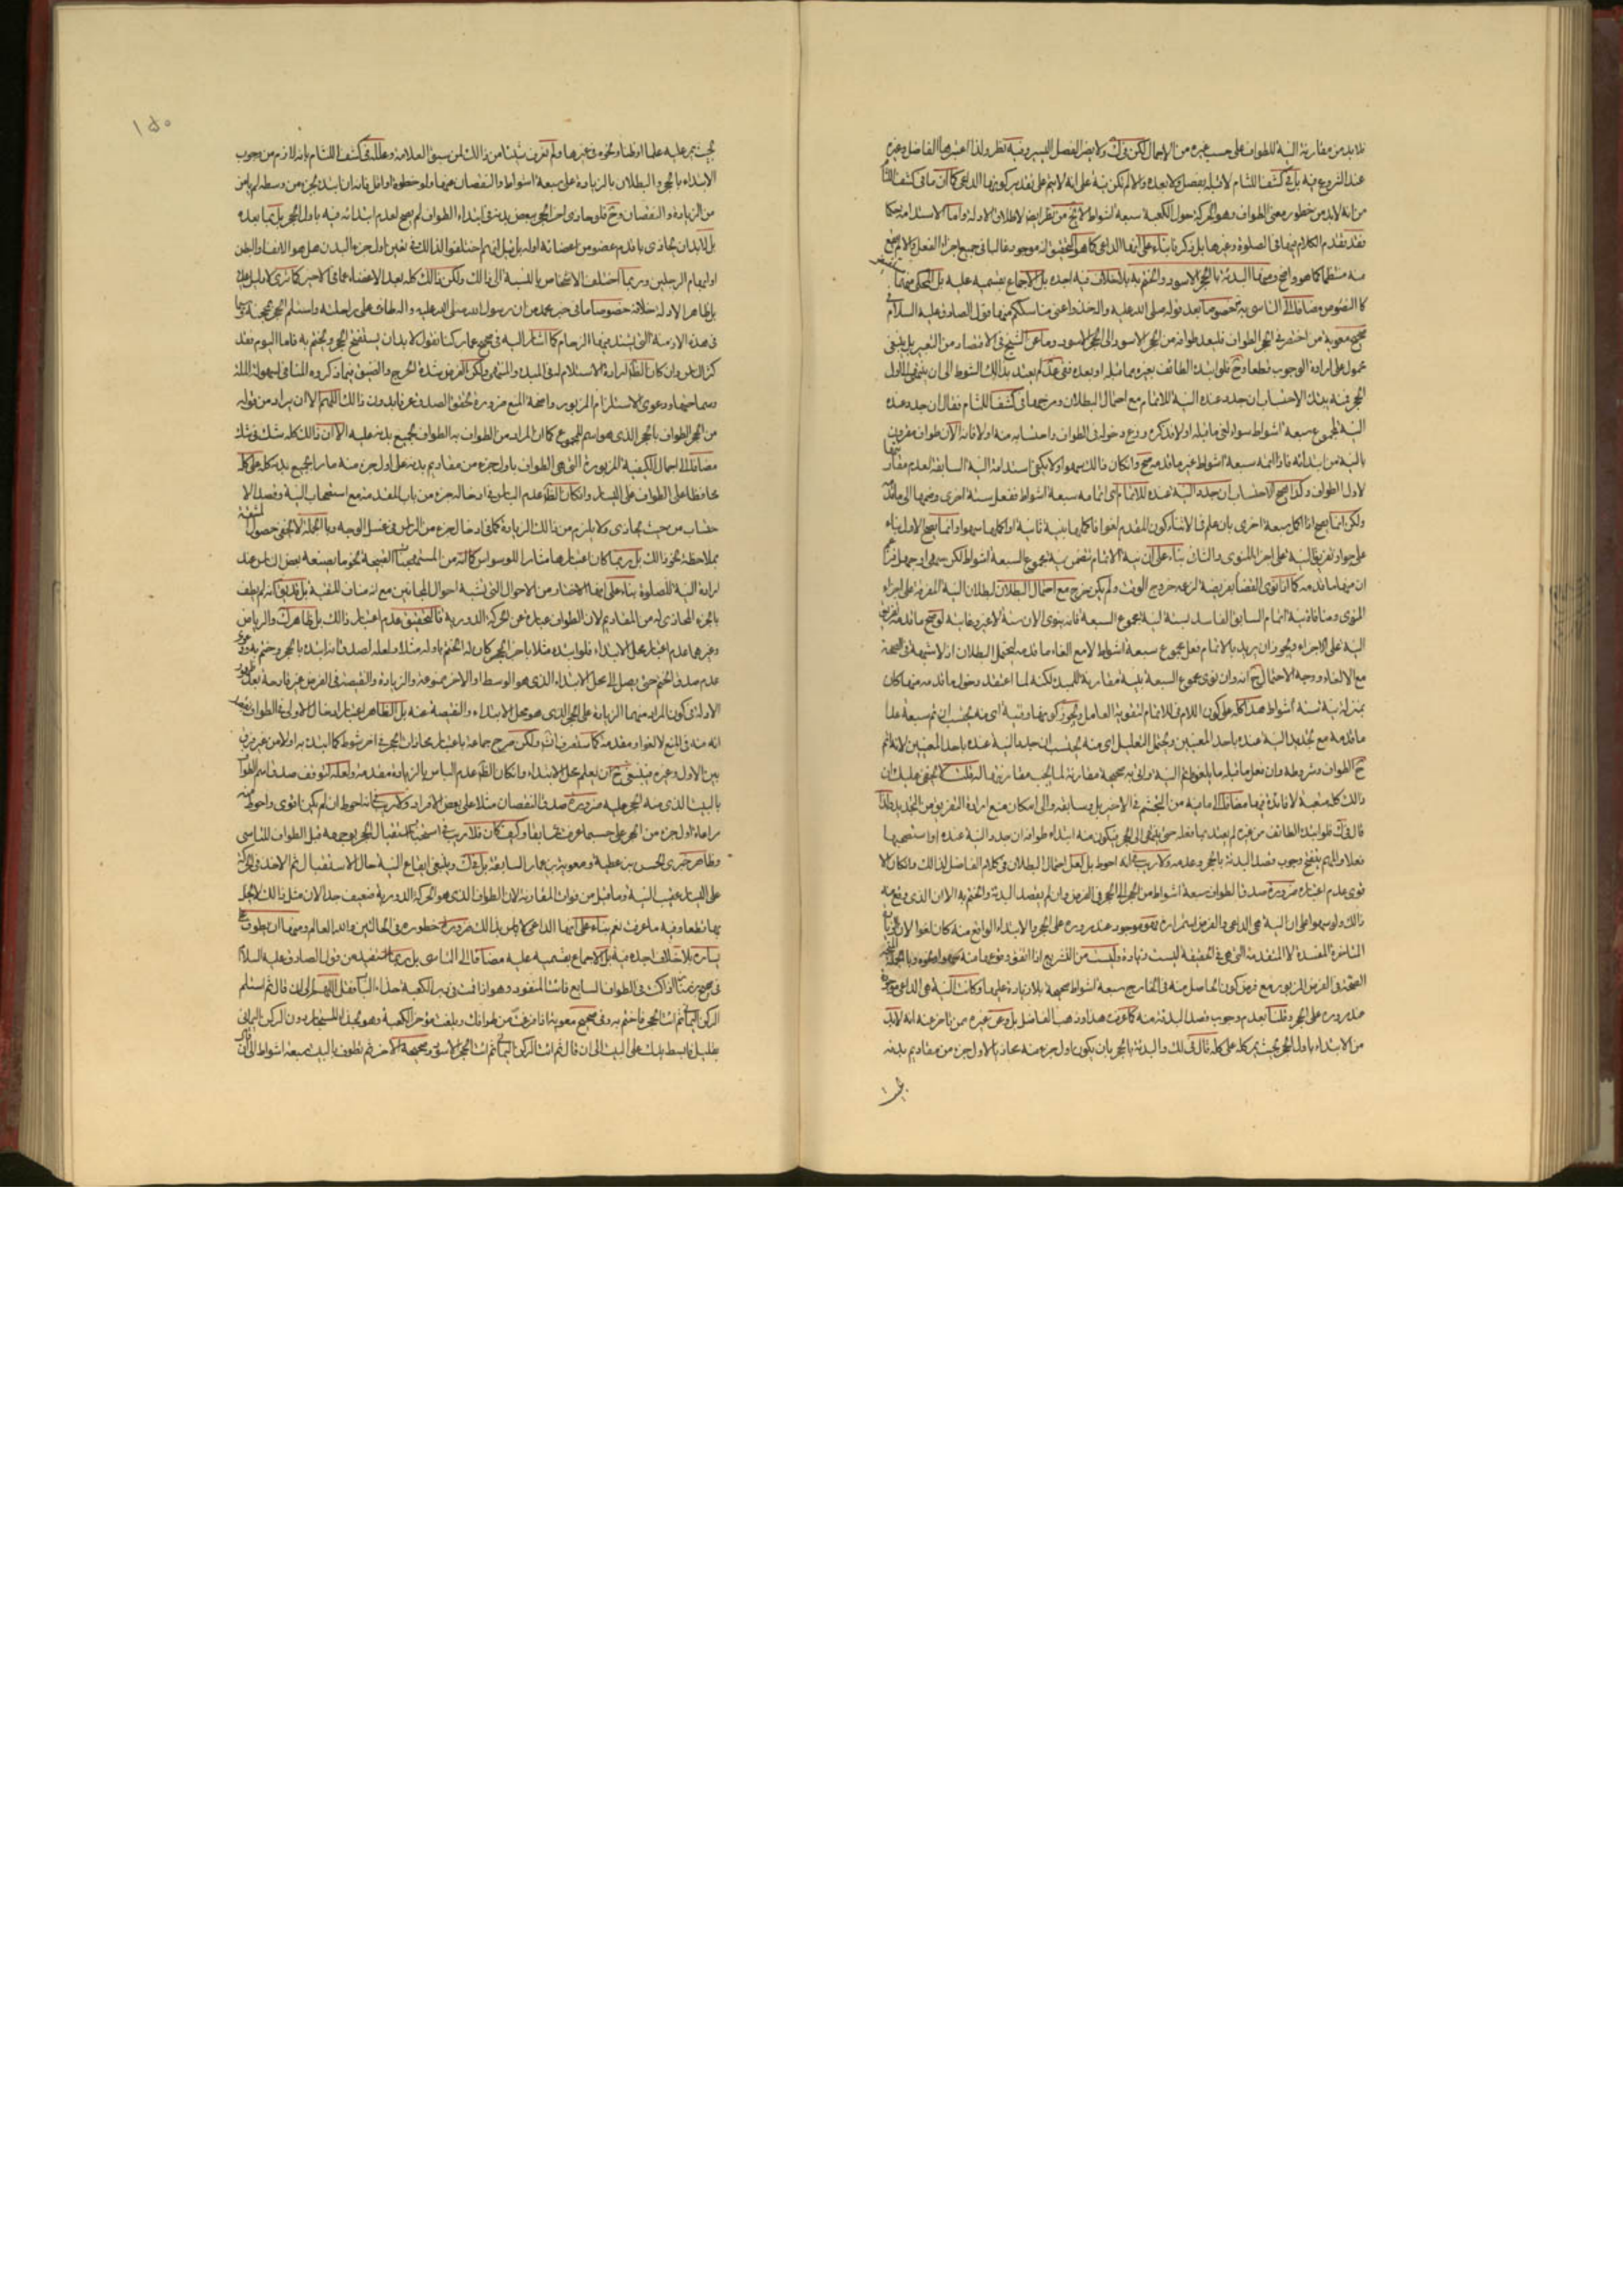 فلابد من مقارنة النية للطواف على حسب غيره من الاعمال لكن في لك ولا يضر الفصل اليسير وفيه نظر ولذا اعتبرها الفاضل وغيره
عند الشروع فيه بل في كشف اللثام لا قبله بفصل ولا بعده والا لم تكن نية على انه لا يتم على تقدير كونها الداعي كما ان ما في كشف اللثام
من انه لابد من خطور معنى الطواف وهو الحركة حول الكعبة سبعة اشواط لا يخ من نظر ايضا لاطلاق الادلة واما الاستدامة حكما
فقد تقدم الكلام فيها في الصلوة وغيرها بل ذكرنا بناء على انها الداعي كما هو التحقيق انه موجود غالبا في جميع اجزاء الفعل
كما هو واضح ومنها البدئة بالحجر الاسود والختم به بلا خلاف فيه اجده بل الاجماع بقسميه عليه بل المحكي منهما
كالنصوص مضافا الى التاسي به خصوصا بعد قوله صلى الله عليه واله خذوا عني مناسككم منها قول الصادق عليه السلام في
صحيح معوية من اختصر في الحجر الطواف فليعد طوافه من الحجر الاسود الى الحجر الاسود وما عن الشيخ في الاقتصاد من التعبير بل ينبغي
محمول على ارادة الوجوب قطعا وح فلو ابتدء الطائف بغيره مما قبله او بعده لم يعتد بذلك الشوط الى ان ينتهي الى اول
الحجر فمنه يبتدئ الاحتساب ان جدد عنده النية للاتمام مع احتمال البطلان ومرجعها في كشف اللثام فقال ان جدد عنده
النية لمجموع سبعة اشواط سواء لغى ما قبله اولا
بالنية من ابتدائه فاذا اتمه سبعة اشواط غير ما قدمه صح وان كان ذلك سهوا ولا يكفي استدامة النية السابقة لعدم مقارنتها
لاول الطواف وكذا صح الاحتساب ان جدد النية عنده للاتمام
ولكن انما يصح اذا اكمل سبعة اخرى بان علم في الاثناء كون المقدم لغوا
على جواز تفريق النية على اجزاء المنوي والثاني بناء على ان نية الاتمام تتضمن نية مجموع السبعة اشواط لكن سهى او جهل فزعم
ان منها ما قدمه كما اذا نوى القضاء بفريضة لزعمه خروج الوقت ولم يكن خرج مع احتمال البطلان لبطلان النية المفرقة على اجزاء
المنوي ومنافاة نية اتمام السابق الفاسد
النية على الاجزاء ويجوز ان يريد بالاتمام فعل مجموع سبعة اشواط لا مع الغاء ما قدمه فيحتمل البطلان اذ لا شبهة في الصحة
مع الالغاء ووجه الاحتمال ح انه وان نوى مجموع السبعة بنية مقارنة للمبدء لكنه لما اعتقد دخول ما قدمه فيها كان
بمنزلة نية ستة اشواط هذا كله على كون اللام في للاتمام لتقوية العامل ويجوز كونها وقتية اي منه يحتسب ان تم سبعة عدا
ما قدمه مع تجديد النية عنده باحد المعنيين ويحتمل التعليل اي منه يحتسب ان جدد النية عنده باحد المعنيين لانه اتم
ح الطواف وشروطه وان فعل ما قبله ما يلغو
ذلك كله متعبة لا فائدة فيها مضافا الى ما فيه من التجشم في الاخير بل وسابقه والى امكان منع ارادة التفريق من التجديد
قال في لك فلو ابتدء الطائف من غيره لم يعتد بما فعله حتى ينتهي الى الحجر فيكون منه ابتداء طوافه ان جدد النية عنده او استصحبها
فعلا والمهم
قوى عدم اعتباره ضرورة صدق الطواف سبعة اشواط من الحجر الى الحجر في الفرض وان لم يقصد البدئة والختم به الا ان الذي وقع منه
ذلك ولو سهوا على ان النية هي الداعي والفرض استمراره فهو موجود عند مروره على الحجر والابتداء الواقع منه كان لغوا
الصحة في الفرض المزبور مع فرض كون الحاصل منه في الخارج سبعة اشواط صحيحة بلا زيادة عليها وكانت النية هي الداعي
عند مروره على الحجر وقلنا بعدم وجوب قصد البدئة منه كما عرفت هذا وذهب الفاضل بل وعن غيره ممن تاخر عنه انه لابد
من الابتداء باول الحجر بحيث يمر كله على كله قال في لك والبدئة بالحجر بان يكون اول جزء منه محاذيا لاول جزء من مقاديم بدنه
بحيث
١٥٠
بحيث يمر عليه علما او ظنا ونحوه في غيرها ولم نعرف شيئا من ذلك لمن سبق العلامة وعلله في كشف اللثام بانه لازم من وجوب
الابتداء بالحجر والبطلان بالزيادة على سبعة اشواط والنقصان عنها ولو خطوة او اقل فانه ان ابتدء بجزء من وسطه لم يامن
من الزيادة والنقصان وح فلو حاذى اخر الحجر ببعض بدنه في ابتداء الطواف لم يصح لعدم ابتدائه فيه باول الحجر بل بما بعده
بل لابد ان يحاذي باقدم عضو من اعضائه اوله بل قيل انهم اختلفوا لذلك في تعيين اول جزء البدن هل هو الانف او البطن
او ابهام الرجلين وربما اختلف الاشخاص بالنسبة الى ذلك ولكن ذلك كله
بل ظاهر الادلة خلافه خصوصا ما في خبر محمد من ان رسول الله صلى الله عليه واله طاف على راحلته واستلم الحجر بمحجنه سيما
في هذه الازمنة التي يشتد فيها الزحام كما اشار اليه في صحيح عمار كنا نقول لابد ان يستفتح بالحجر ويختم به فاما اليوم فقد
كثر الناس وان كان الظ ارادة الاستلام له في المبدء والمنتهى ولكن الغرض شدة الحرج والضيق فيما ذكروه المنافي لسهولة الملة
وسماحتها ودعوى الاستلزام المزبور واضحة المنع ضرورة تحقق الصدق عرفا بدون ذلك اللهم الا ان يراد من قوله
من الحجر الطواف بالحجر الذي هو اسم للمجموع كما ان المراد من الطواف به الطواف بجميع بدنه عليه الا ان ذلك كله شك في شك
مضافا الى اجمال الكيفية المزبورة التي هي الطواف باول جزء من مقاديم بدنه على اول جزء منه مارا بجميع بدنه كله على كله
محافظا على الطواف على اليسار وان كان الظ عدم الباس في ادخال جزء من باب المقدمة مع استصحاب النية وقصد الا
حتساب من حيث يحاذي ولا يلزم من ذلك الزيادة كما في ادخال جزء من الراس في غسل الوجه وبالجملة لا يخفى حصول المشقة
بملاحظة نحو ذلك بل ربما كان اعتبارها مثارا للوسواس كما انه من المستهجنات القبيحة نحو ما يصنعه بعض الناس عند
ارادة النية للصلوة بناء على انها الاخطار من الاحوال التي تشبه احوال المجانين
بالجزء المحاذي له من المقاديم لان الطواف عبارة عن الحركة الدورية فالتحقيق عدم اعتبار ذلك بل ظاهر لك والرياض
وغيرهما عدم اعتبار محل الابتداء فلو ابتدء مثلا باخر الحجر كان له الختم باوله مثلا ولعله لصدق انه ابتدء بالحجر وختم به ودعوى
عدم صدق الختم حتى يصل الى محل الابتداء الذي هو الوسط او الاخر ممنوعة والزيادة والنقيصة في الفرض غير قادحة بعد ظهور
الادلة في كون المراد منهما الزيادة على الحجر الذي هو محل الابتداء والنقيصة عنه بل الظاهر اعتبار ادخال الاولى في الطواف
انه منه في المنع لا لغوا ومقدمة كما ستعرف انش ولكن صرح جماعة باعتبار محاذات الحجر في اخر شوط كما ابتدء به اولا من غير فرق
بين الاول وغيره فينبغي ح ان يعلم محل الابتداء وان كان الظ عدم الباس بالزيادة مقدمة ولعله لتوقف صدق اسم الطواف
بالبيت الذي منه الحجر عليه ضرورة صدق النقصان مثلا على بعض الافراد ولا ريب في انه احوط ان لم يكن اقوى واحوط منه
مراعاة اول جزء من الحجر على حسبما عرفت سابقا وكيف كان فلا ريب في استحباب استقبال الحجر بوجهه قبل الطواف للتاسي
وظاهر خبري الحسن بن عطية ومعوية بن عمار السابقة بل في لك وينبغي ايقاع النية حال الاستقبال ثم الاخذ في الحركة
على اليسار عقيب النية وما قيل من فوات المقارنة لان الطواف الذي هو الحركة الدورية ضعيف جدا لان مثل ذلك لا يخل
بها قطعا وفيه ما عرفت نعم بناء على انها الداعي لا باس بذلك ضرورة خطوره في الحالتين والله العالم ومنها ان يطوف على
يساره بلا خلاف اجده فيه بل الاجماع بقسميه عليه مضافا الى التاسي بل ربما استفيد من قول الصادق عليه السلام
اذا كنت في الطواف السابع فائت المتعوذ وهو اذا قمت في دبر الكعبة حذاء الباب فقل اللهم الى ان قال ثم استلم
الركن اليماني ثم ائت الحجر فاختم به وفي صحيح معوية اذا فرغت من طوافك وبلغت مؤخر الكعبة وهو بحذاء المستجار دون الركن اليماني
بقليل فابسط يديك على البيت الى ان قال ثم ائت الركن اليماني ثم ائت الحجر الاسود وصحيحه الاخر ثم تطوف بالبيت سبعة اشواط الى ان قال